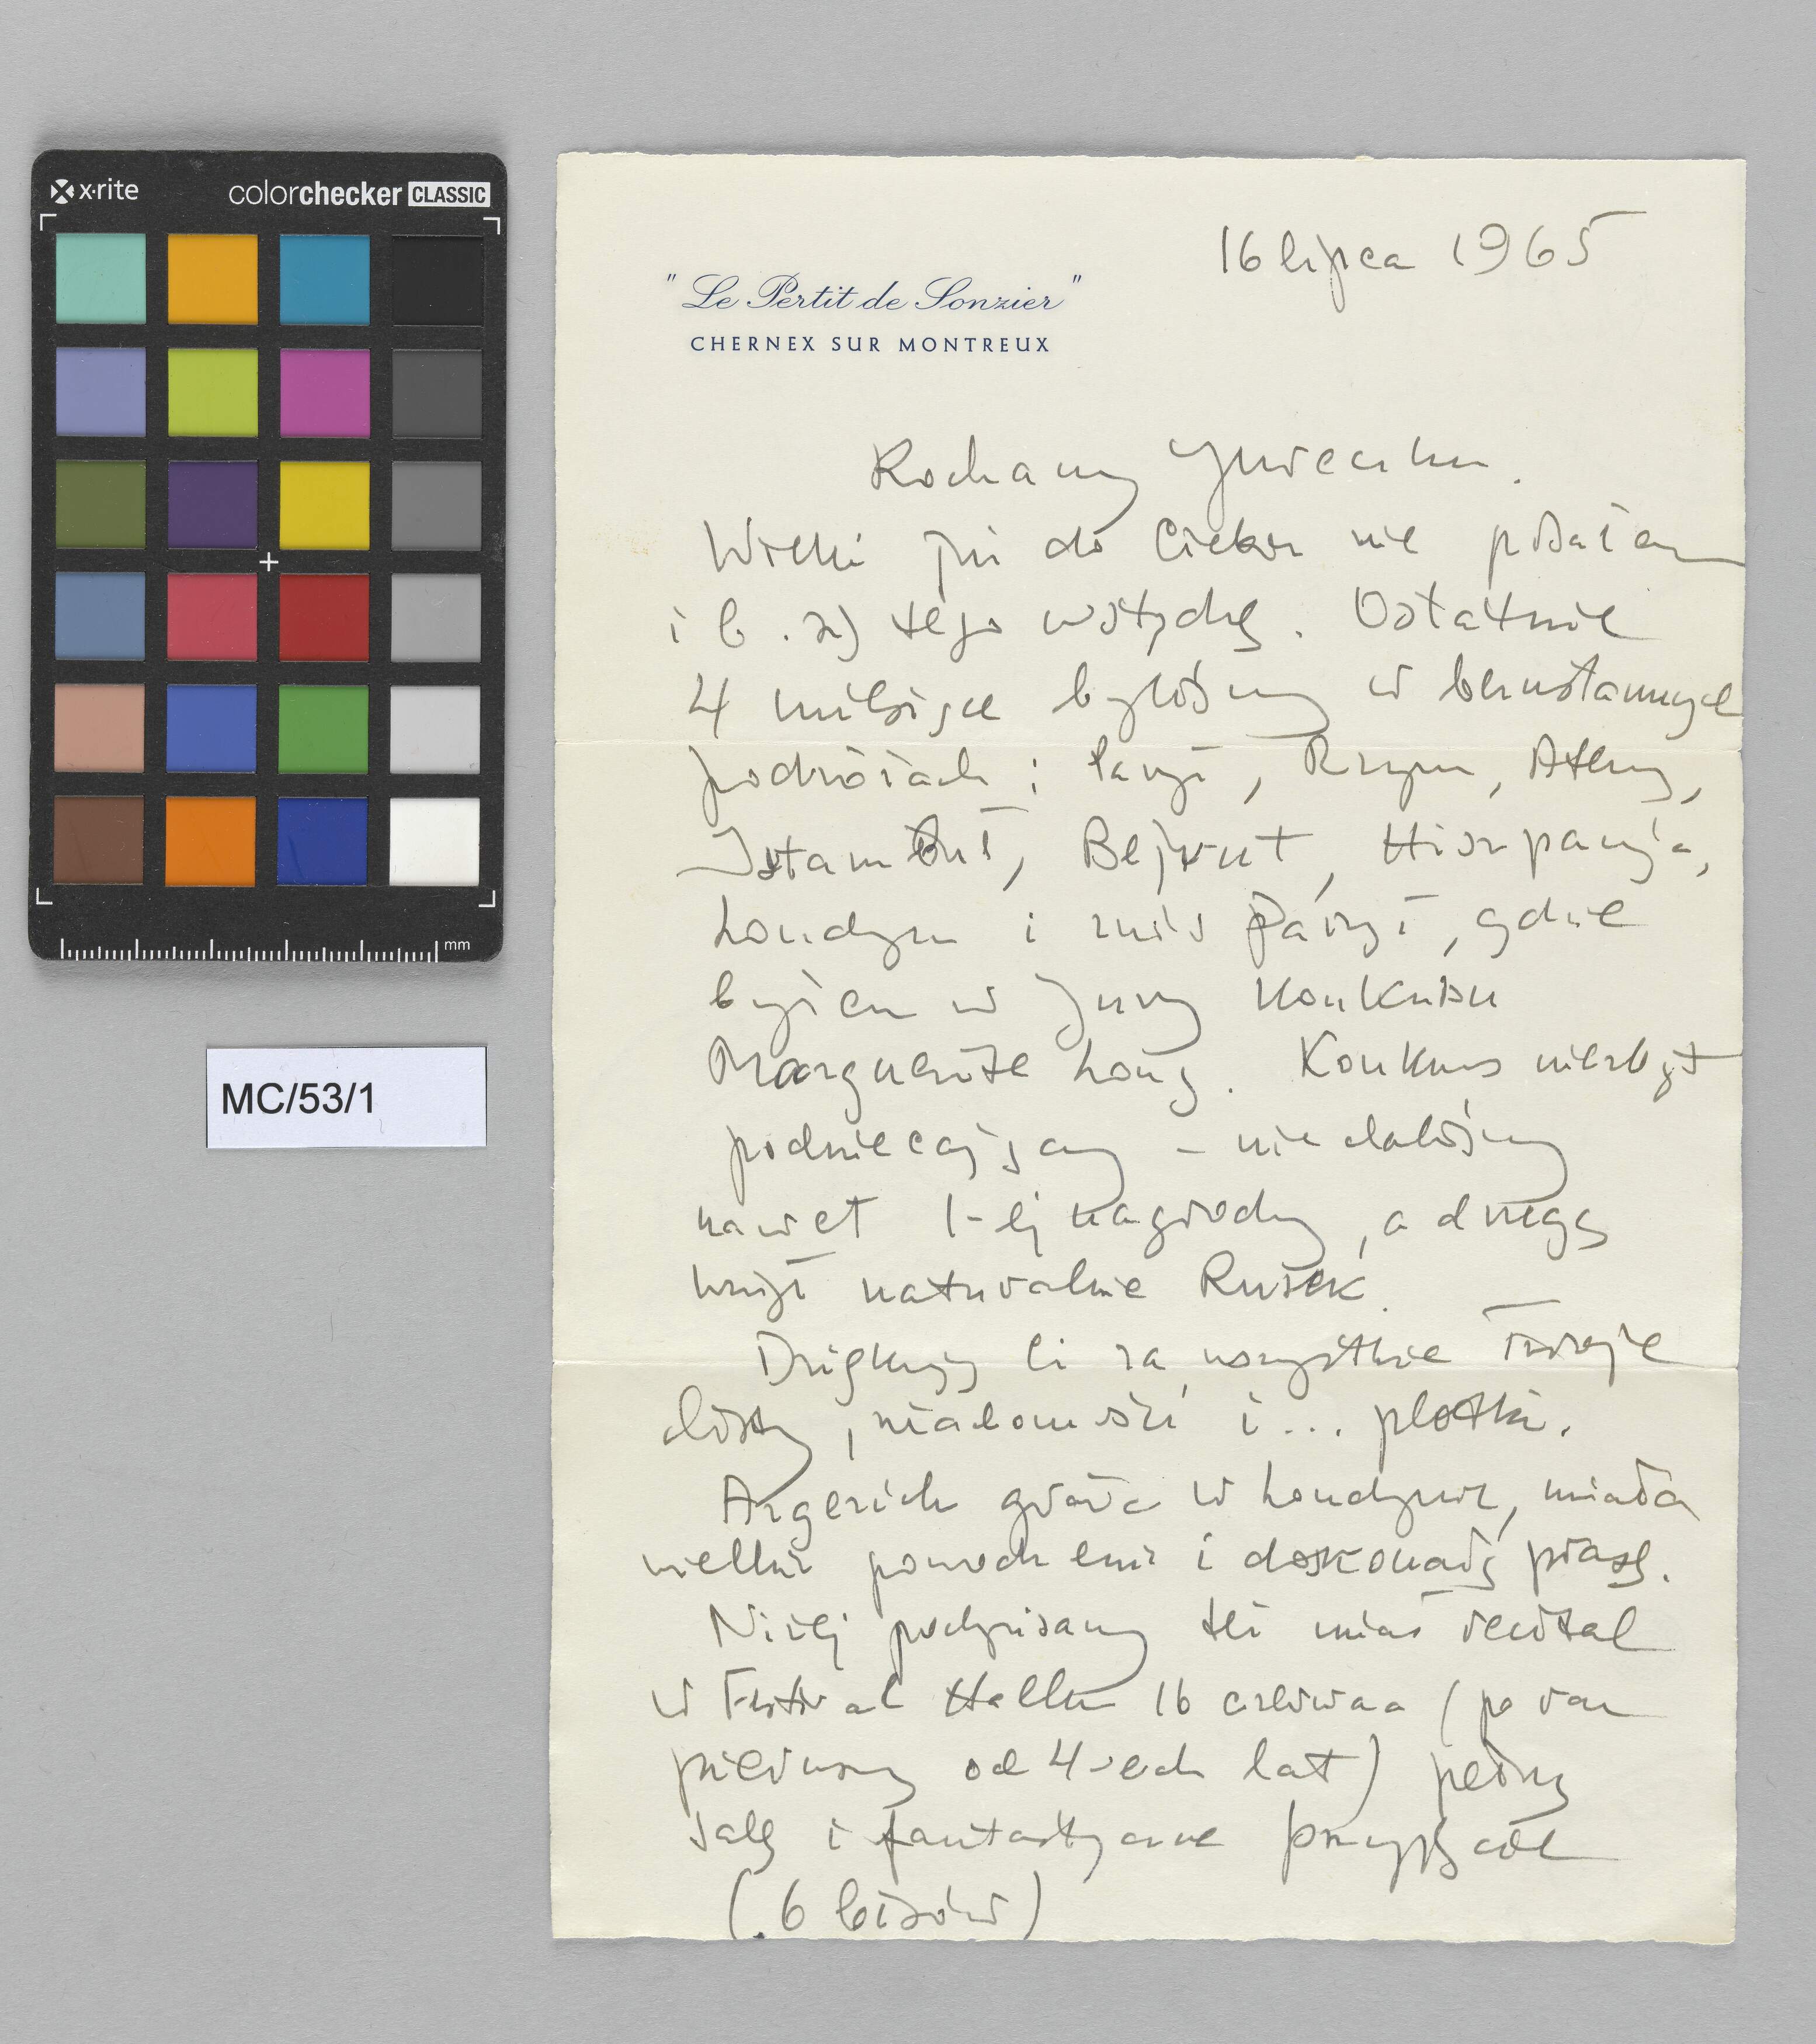 x·rite
colorchecker CLASSIC
mm
MC/53/1
16 lipca 1965
"Le Pertit de Sonzier"
CHERNEX SUR MONTREUX
Kochany Jureczku.
Wieki już do Ciebie nie pisałem
i b. się tego wstydzę. Ostatnie
4 miesiące byliśmy w bezustannych
podróżach: Paryż, Rzym, Ateny,
Istambuł, Bejrut, Hiszpanja,
Londyn i znów Paryż, gdzie
byłem w Jury Konkursu
Marguerite Long. Konkurs niezbyt
podniecający – nie daliśmy
nawet 1-ej nagrody, a drugą
wziął naturalnie Rusek.
Dziękuję Ci za wszystkie Twoje
listy, wiadomości i... plotki.
Argerich grała w Londynie, miała
wielkie powodzenie i doskonałą prasę.
Niżej podpisany też miał recital
w Festival Hallu 16 czerwca (po raz
pierwszy od 4-ech lat) pełną
salę i fantastyczne przyjęcie
(6 bisów)